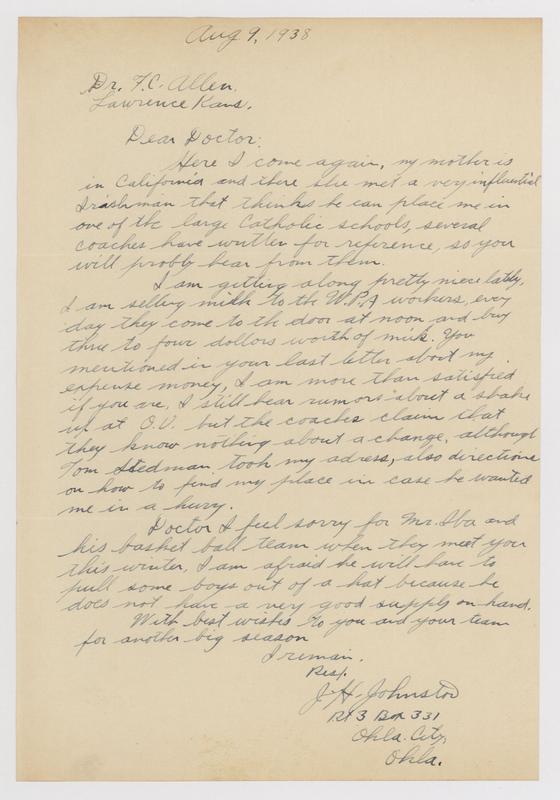 Aug 9, 1938
Dr. F.C. Allen.
Lawrence Kans.
Dear Doctor:
Here I come again, my mother is
in California and there she met a very influential
Irishman that thinks he can place me in
one of the large Catholic schools, several
coaches have written for reference, so you
will probly hear from them.
I am getting along pretty niece lately,
I am selling milk to the W.P.A workers, evry
day they come to the door at noon and buy
three to four dollors worth of milk. You
mentioned in your last letter about my
expense money, I am more than satisfied
if you are. I still hear rumors about a shake
up at O.U. but the coaches claim that
they know nothing about a change, although
Tom Stidman took my adress, also directions
on how to find my place in case he wanted
me in a hurry.
Doctor I feel sorry for Mr. Iba and
his basket ball team when they meet you
this winter, I am afraid he will have to
pull some boys out of a hat because he
does not have a very good supply on hand.
With best wishes to you and your team
for another big season
I remain.
Resp.
J-H-Johnston
Rt 3 Box 331
Okla. City,
Okla.